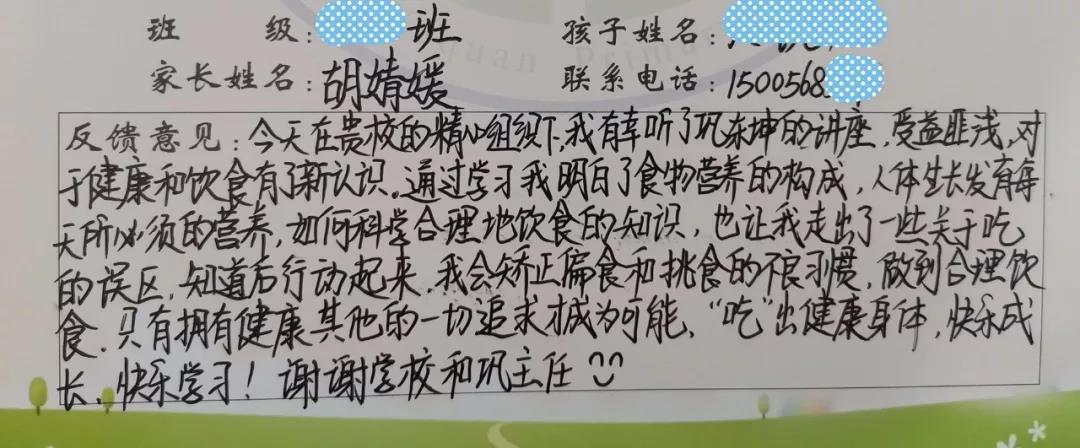 班 级: 班 孩子姓名:
家长姓名: 胡婧媛 联系电话: 1500568
反馈意见: 今天在贵校的精心组织下,我有幸听了巩东坤的讲座,受益匪浅,对
于健康和饮食有了新认识。通过学习我明白了食物营养的构成,人体生长发育每
天所必须的营养,如何科学合理地饮食的知识,也让我走出了一些关于吃
的误区,知道后行动起来,我会矫正偏食和挑食的不良习惯,做到合理饮
食.只有拥有健康其他的一切追求才成为可能,“吃”出健康身体,快乐成
长、快乐学习!谢谢学校和巩主任